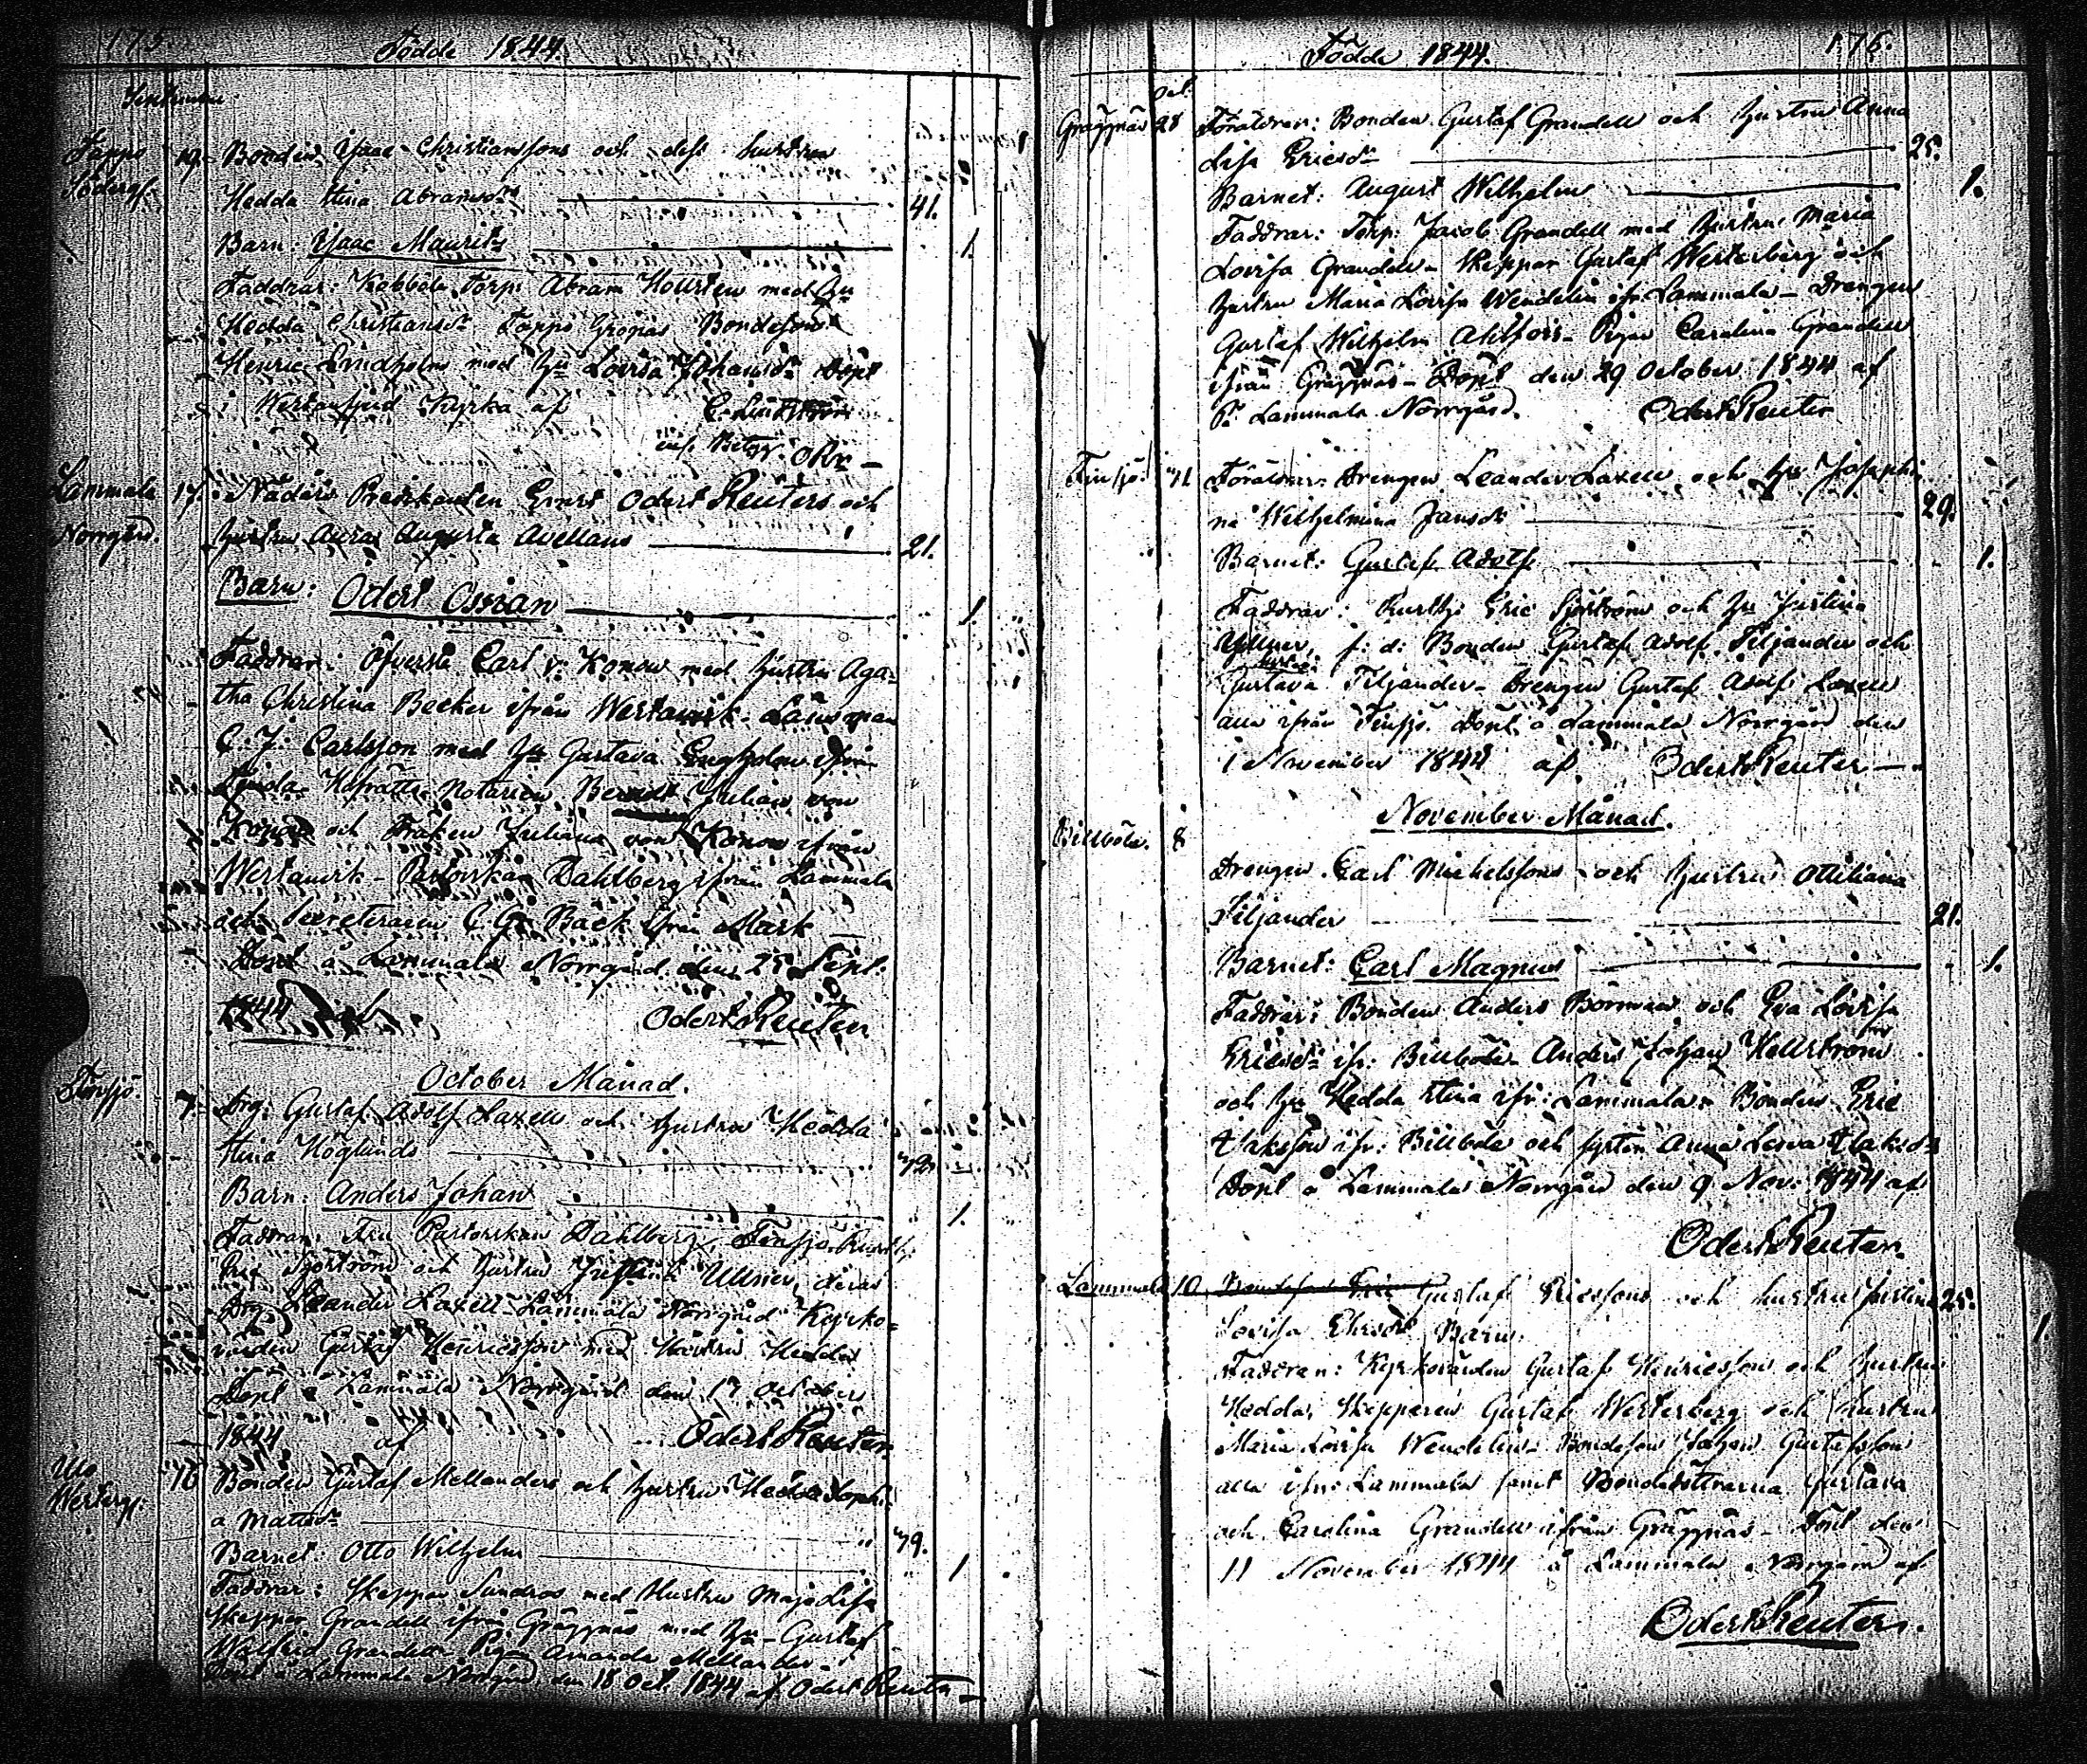 175.
Födde 1844.
September
Tappo 19. Bonden Isaac Christianssons och dess hustru
Söderg:
Hedda Stina Abramsdr 41.
Barn: Isaac Maurits 1.
Faddrar: Kobböle Torp: Abram Hollsten med Hu
Hedda Christiansdr Tappo Bondeson
Henric Lindholm med Hu Lovisa Johansdr Döpt
i Westanfjerd Kyrka af C. Lindström
enl. Betyg. ORr
Lammala 17. Nådårs Predikanten Ernst Odert Reuters och
Norrgård. hustru Aura Augusta Avellans 21.
Barn: Odert Ossian 1.
Faddrar: Öfverste Carl v: Konow med hustru Aga-
tha Christina Becker ifrån Westanvik - Länsman
C. J. Carlsson med Hu Gustava Engholm ifrån
Hofrätts Notarien Julian von
Konow och Fröken Juliana von Konow ifrån
Westanvik - Pastorskan Dahlberg ifrån Lammala
och Secreteraren C. G. Bäck ifrån Mark
Döpt å Lammala Norrgård den 25 Sept.
1844 af Odert Reuter
October Månad.
Finsjö. 7. Drg: Gustaf Adolf Laxell och hustru Hedda
Stina Höglunds
Barn: Anders Johan 1.
Faddrar: Fru Pastorskan Dahlberg, Finsjö Rusth:
Eric Sjöström och hustru Ullner, deras
Drg Leander Laxell Lammala Norrgård Kyrko-
värden Gustaf Henricsson med Hustru Hedda
Döpt å Lammala Norrgård den 17 October
1844 af Odert Reuter.
16 Bonden Gustaf Mellanders och hustru Hedda Sophi-
Westerg:
a Mattsdr
Barnet: Otto Wilhelm 1
Faddrar: Skeppar Sundroos med Hustru Maja Lisa
Skeppar Grandell ifrån Gräggnäs med Hu - Gustaf
Walfrid Grandell Pig. Amanda Mellander
Döpt å Lammala Norrgård den 18 Oct. 1844 af Odert Reuter
176.
Födde 1844.
Oct.
Gräggnäs 28 Föräldrar: Bonden Gustaf Grandell och hustru Anna
Lisa Ericsdr 25.
Barnet: August Wilhelm 1.
Faddrar: Torp. Jacob Grandell med hustru Maria
Lovisa Grandell - Skeppar Gustaf Westerberg och
hustru Maria Lovisa Wendelin ifr. Lammala - Drengen
Gustaf Wilhelm Ahlfors - Pigan Carolina Grandell
ifrån Gräggnäs - Döpt den 29 October 1844 af
på Lammala Norrgård. Odert Reuter
Finsjö. Föräldrar: Drengen Leander Laxell och Hu Josephi-
na Wilhelmina Jansdr 29.
Barnet: Gustaf Adolf 1.
Faddrar: Rusth: Eric Sjöström och Hu Justina
Ullner, f: d: Bonden Gustaf Adolf Tiljander och
hustru
Gustava Tiljander - Drengen Gustaf Adolf Laxell
alla ifrån Finsjö. Döpt å Lammala Norrgård den
1 November 1844 af Odert Reuter
November Månad.
Billböle. 8
Drengen Carl Michelssons och hustru Ottiliana
Tiljander 21.
Barnet: Carl Magnus 1.
Faddrar: Bonden Anders Börman och Eva Lovisa
Ericsdr ifr: Billböle - Anders Johan Hellström
och Hu Hedda Stina ifr: Lammala - Bonden Eric
Isaksson ifr: Billböle och system Anna Lovisa Isaksdr
Döpt å Lammala Norrgård den 9 Nov: 1844 af
Odert Reuter.
Lammala 10. Bondeson Eric Gustaf Ericssons och hustru Justina 25.
Lovisa Barn 1.
Faddrar: Kyrkovärden Gustaf Henricsson och hustru
Hedda, Skepparen Gustaf Westerberg och hustru
Maria Lovisa Wendelin - Bondeson Johan Gustafsson
alla ifr: Lammala samt Bondedöttrarna Gustava
och Carolina Grandell ifrån Gräggnäs - Döpt den
11 November 1844 å Lammala Norrgård af
Odert Reuter.